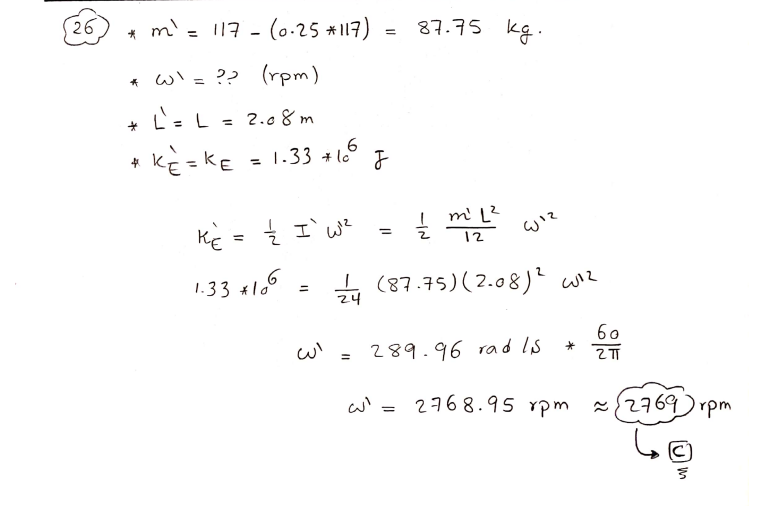 26 * m' = 117 - (0.25 *117) = 87.75 kg.
* ω' = ?? (rpm)
* L' = L = 2.08 m
* KE' = KE = 1.33 *10^6 J
KE' = 1/2 I' ω'^2 = 1/2 m' L^2/12 ω'^2
1.33 *10^6 = 1/24 (87.75)(2.08)^2 ω'^2
ω' = 289.96 rad/s * 60/2π
ω' = 2768.95 rpm ≈ 2769 rpm
↳ C